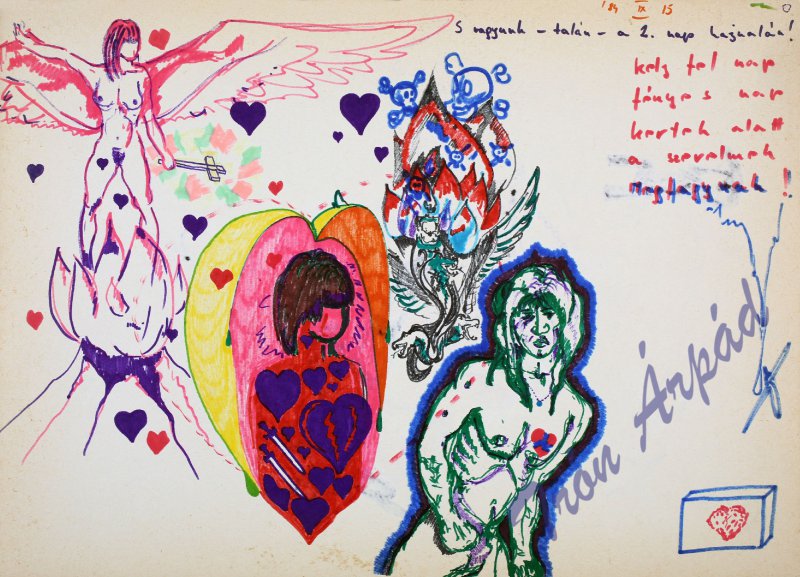 '84 IX 15
S vagyunk - talán - a 2. nap hajnalán!
kelj fel nap
fényes nap
kertek alatt
a szerelmek
megfagynak!
Áron Árpád